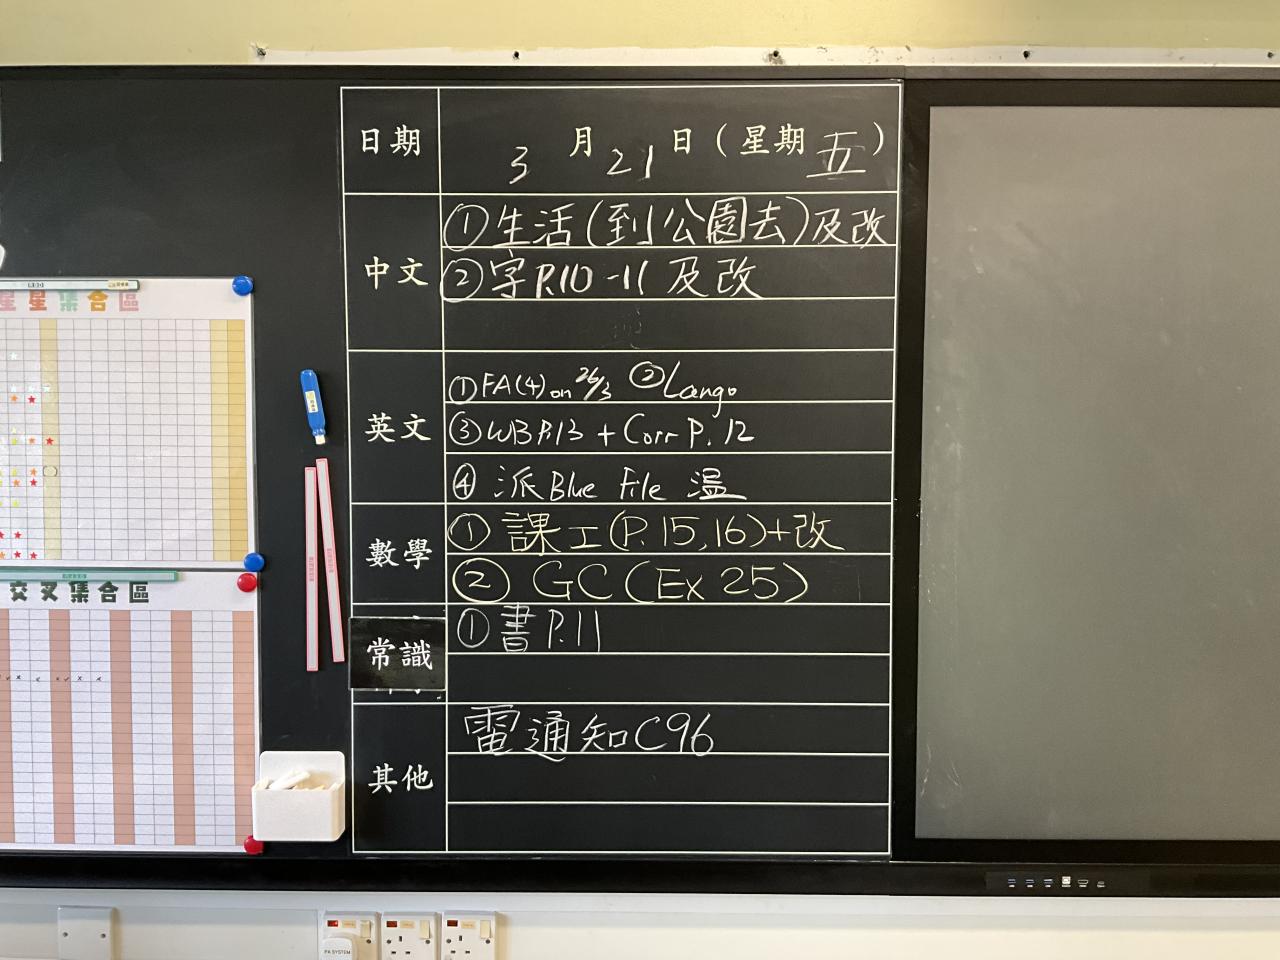 日期 3月21日(星期五)
中文
①生活(到公園去)及改
②字P.10-11及改
英文
①FA(4) on 26/3 ②Lango
③WB P.13 + Corr P.12
④派Blue File 溫
數學
①課工(P.15,16)+改
②GC(Ex 25)
常識
①書P.11
其他
電通知C96
星星集合區
交叉集合區
PA SYSTEM